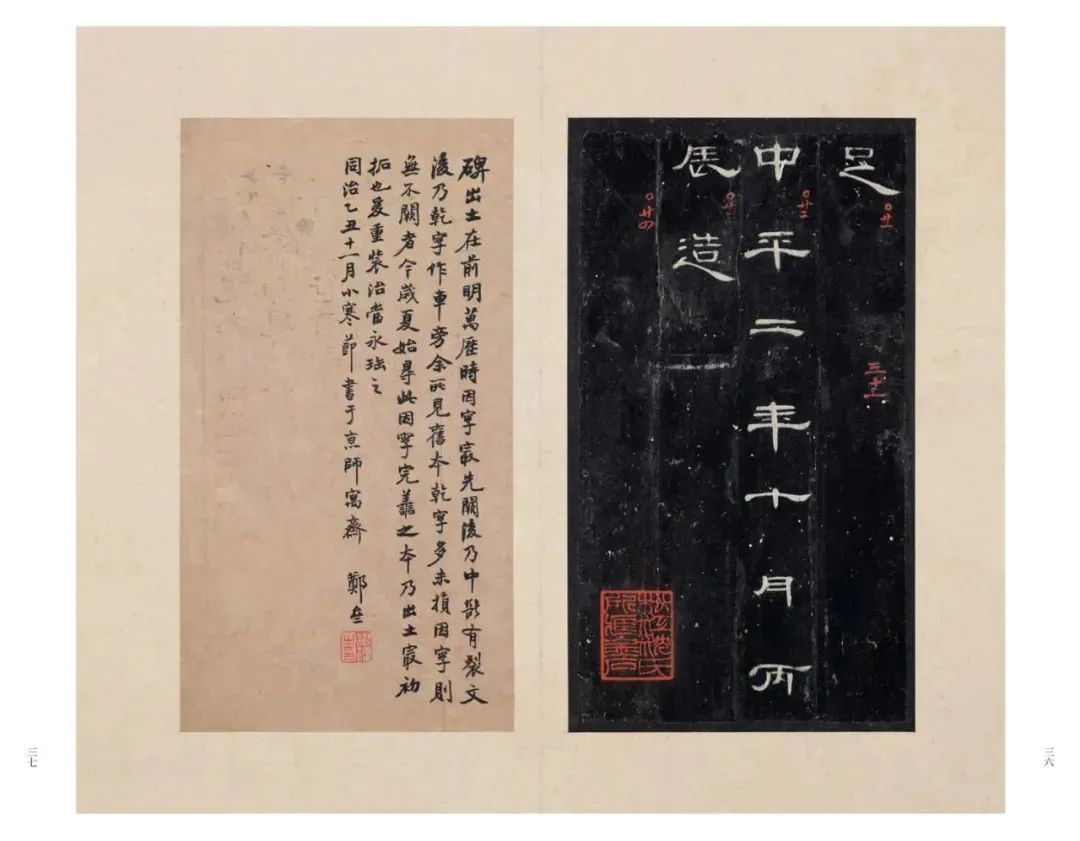 足
〇廿二
三十一
中平二年十月丙
辰造
〇廿四
三六
碑出土在前明萬歷時因字最先闕後乃中斷有裂文
後乃乾字作車旁余所見舊本乾字多未損因字則
無不闕者今歲夏始尋此因字完善之本乃出土最初
拓也爰重裝治當永珤之
同治乙丑十一月小寒節書于京師寓齋 鄭
三七